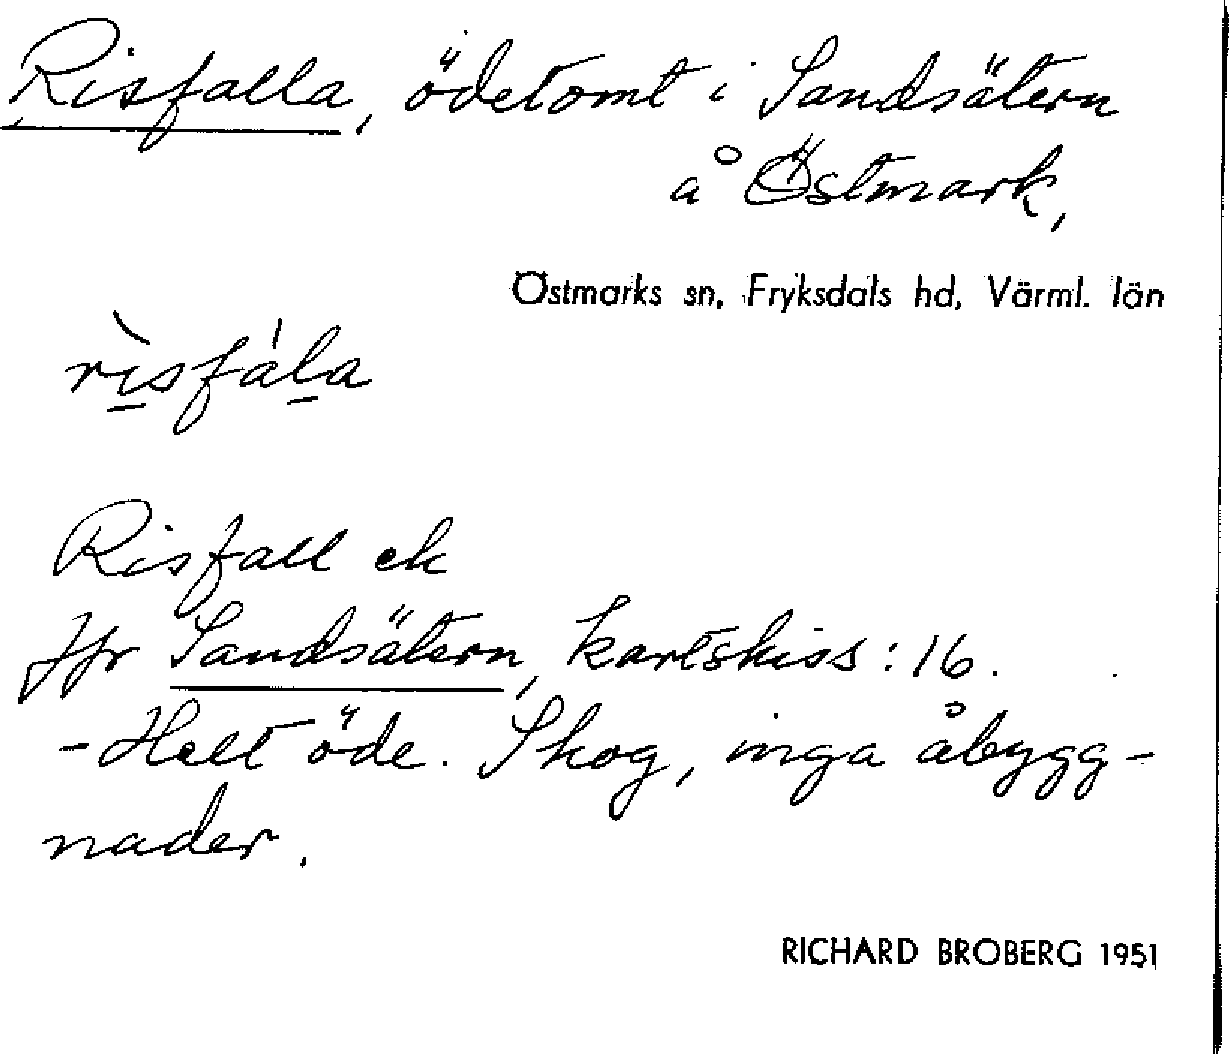 Risfalla, ödetomt i Sandsätern
å Östmark,
Östmarks sn, Fryksdals hd, Värml. län
rìsfála
Risfall ek
Jfr Sandsätern, kartskiss: 16.
- Helt öde. Skog, inga åbygg-
nader.
RICHARD BROBERG 1951